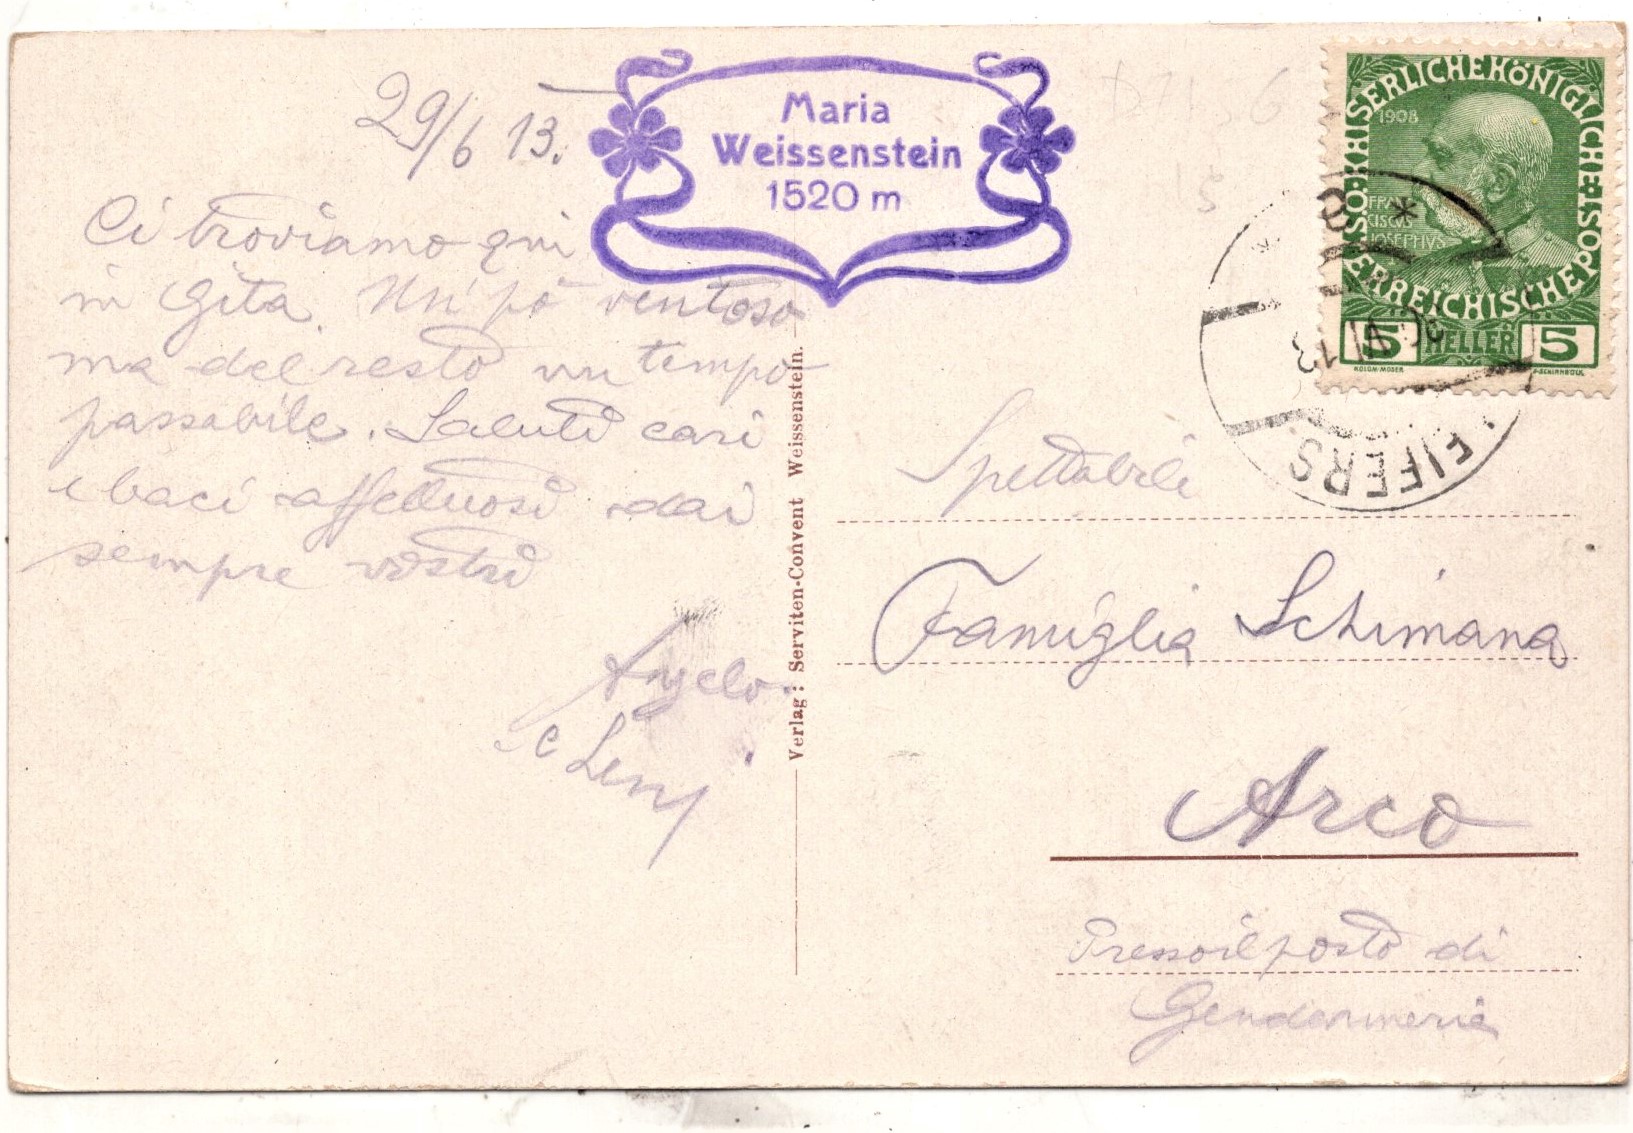 29/6 13.
Maria
Weissenstein
1520 m
Ci troviamo qui
in gita. Un' pò ventoso
ma del resto un tempo
passabile. Saluti cari
e baci affettuosi dai
sempre vostri
Angelo
e Leny
Verlag: Serviten-Convent Weissenstein.
KAISERLICHEKÖNIGLICHE ÖSTERREICHISCHEPOST
1908
FRAN
CISCVS
IOSEPHVS
5 HELLER 5
KOLOM·MOSER
F·SCHIRNBÖCK
LEIFERS
VI 13
Spettabile
Famiglia Schimana
Arco
Presso il posto di
Gendarmeria